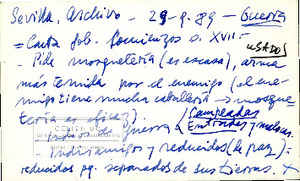 Sevilla, Archivo - 29-9-89 - Guerra
= Carta Gob. Comienzos s. XVII:
- Pide mosquetería (es escasa), arma
USADOS
más temida por el enemigo (el ene-
migo tiene mucha caballería → mosque
tería es eficaz).
de Guerra (Campeadas
Entradas y malocas.
- Indios amigos y reducidos (de paz) -
reducidos pq. separados de sus tierras. X